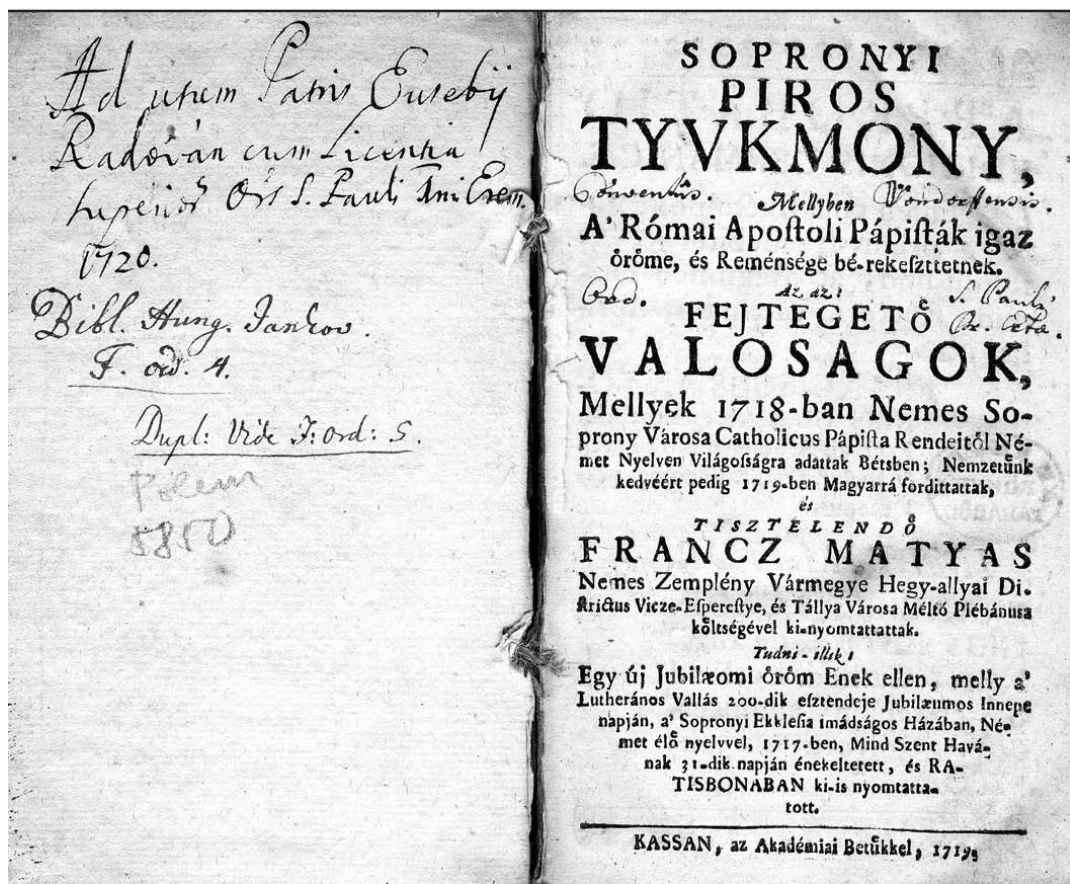 Ad usum Patris Eusebij
Radován cum Licentia
superiorũ Ords S. Pauli Imi Erem.
1720.
Bibl. Hung. Jankov.
F. ord. 4.
Dupl: Vide F: ord: 5.
Polem
5850
SOPRONYI
PIROS
TYVKMONY,
Conventûs. Mellyben Vondorffensis.
A' Római Apoſtoli Pápiſták igaz
oͤroͤme, és Reménsége bé-rekeſzttetnek.
Ord. Az az: S. Pauli
FEJTEGETOͤ Pr. Ertae.
VALOSAGOK,
Mellyek 1718-ban Nemes So-
prony Városa Catholicus Pápiſta Rendeitoͤl Né-
met Nyelven Világoſságra adattak Bétsben; Nemzetuͤnk
kedvéért pedig 1719-ben Magyarrá fordittattak,
és
TISZTELENDOͤ
FRANCZ MATYAS
Nemes Zemplény Vármegye Hegy-allyai Di-
ſtrictus Vicze-Eſpereſtye, és Tállya Városa Méltó Plébánusa
koͤltségével ki-nyomtattattak.
Tudni-illik:
Egy új Jubilæomi oͤroͤm Enek ellen, melly a'
Lutherános Vallás 200-dik eſztendeje Jubilæumos Innepe
napján, a' Sopronyi Ekkleſia imádságos Házában, Né-
met éloͤ nyelvvel, 1717-ben, Mind Szent Havá-
nak 31-dik napján énekeltetett, és RA-
TISBONABAN ki-is nyomtatta-
tott.
KASSAN, az Akadémiai Betuͤkkel, 1719.